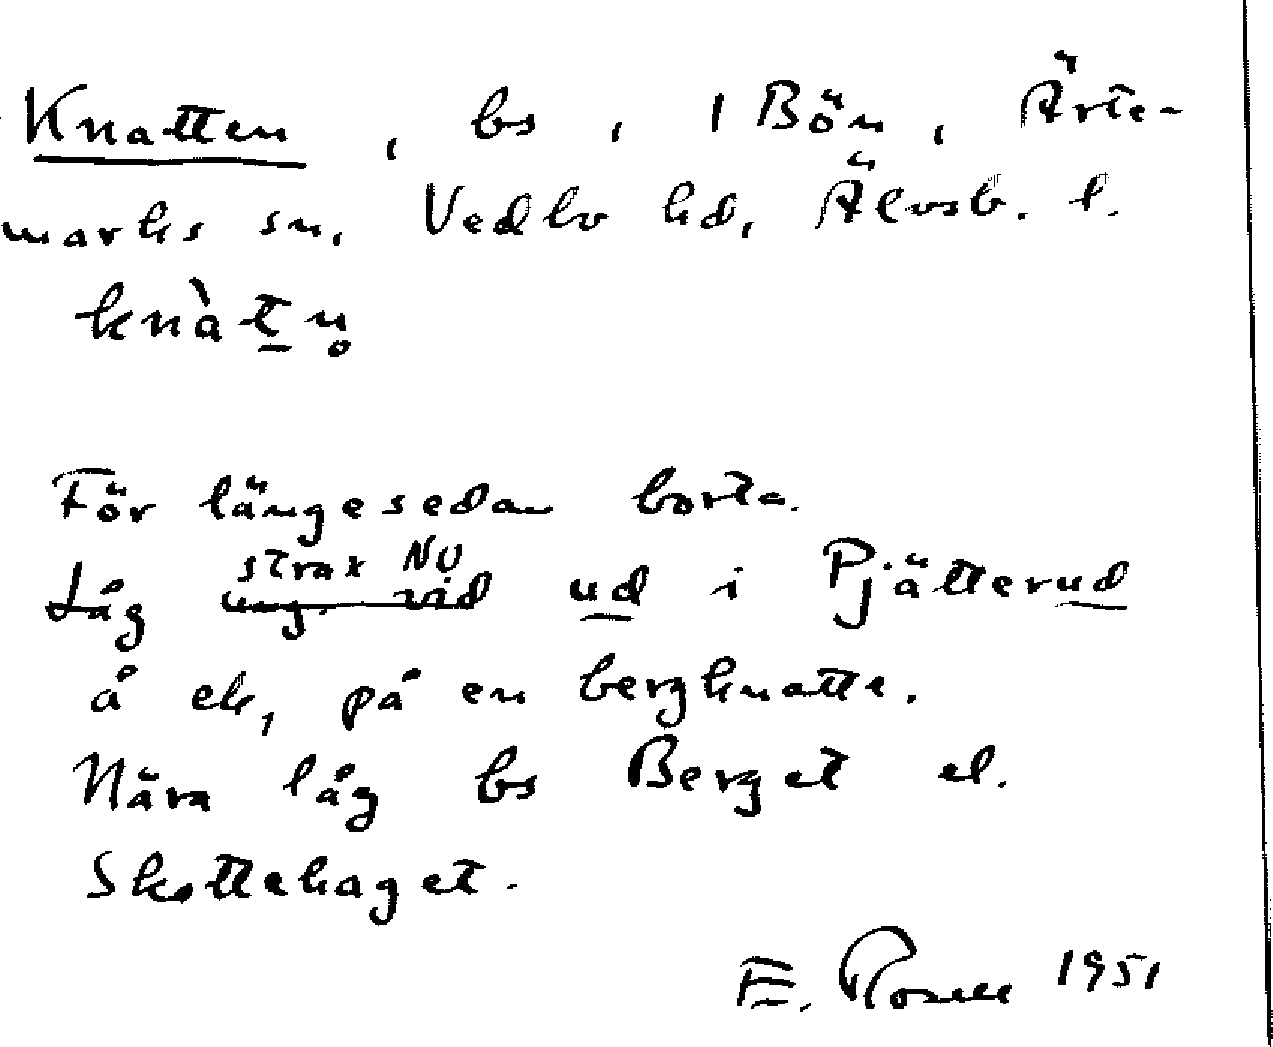 Knatten, bs, 1 Bön, Ärte-
marks sn, Vedbo hd, Älvsb. l.
knàt̲n̥
För längesedan borta.
strax NO
Låg ung. vid ud i Pjätterud
å ek, på en bergknatte.
Nära låg bs Berget el.
Skottehaget.
E. Rosell 1951